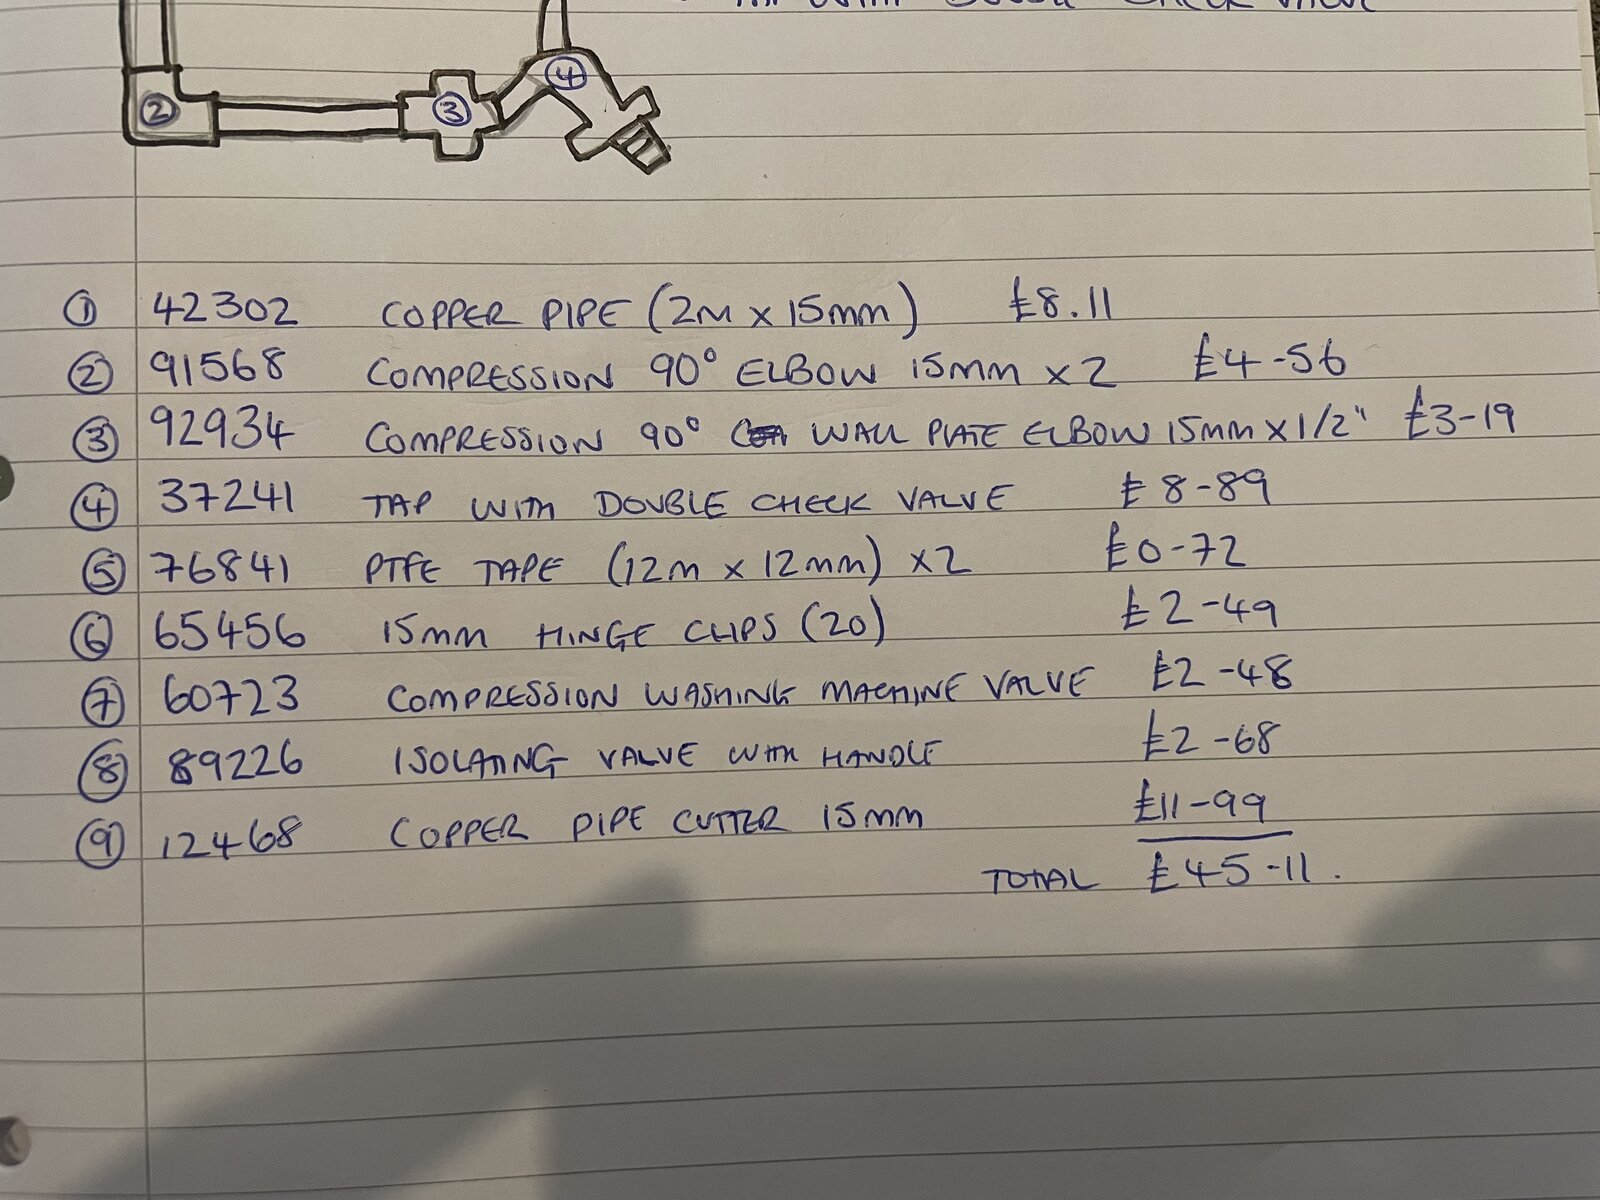 TAP WITH DOUBLE CHECK VALVE
2 3 4
① 42302 COPPER PIPE (2M x 15mm) £8.11
② 91568 COMPRESSION 90° ELBOW 15mm x 2 £4-56
③ 92934 COMPRESSION 90° WALL PLATE ELBOW 15mm x 1/2" £3-19
④ 37241 TAP WITH DOUBLE CHECK VALVE £8-89
⑤ 76841 PTFE TAPE (12M x 12mm) x2 £0-72
⑥ 65456 15mm HINGE CLIPS (20) £2-49
⑦ 60723 COMPRESSION WASHING MACHINE VALVE £2-48
⑧ 89226 ISOLATING VALVE WITH HANDLE £2-68
⑨ 12468 COPPER PIPE CUTTER 15mm £11-99
TOTAL £45-11.